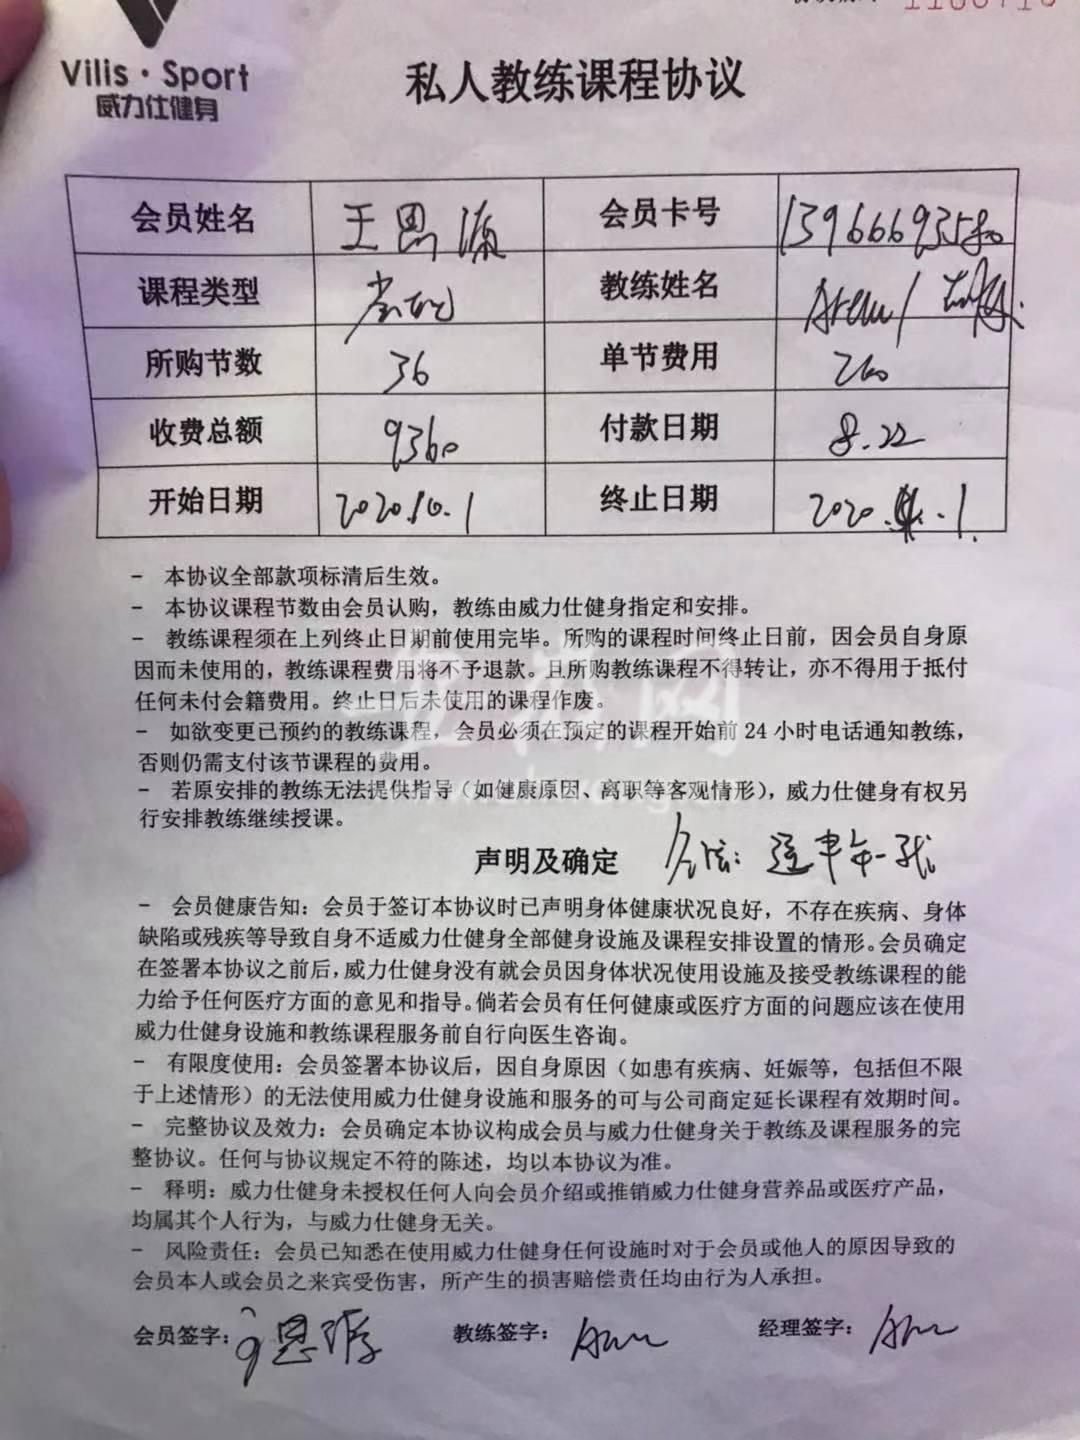 Vilis·Sport
威力仕健身
私人教练课程协议
会员姓名 王恩源 会员卡号
课程类型 常规 教练姓名
所购节数 36 单节费用 260
收费总额 9360 付款日期 8.22
开始日期 2020.10.1 终止日期 2020. .1.
- 本协议全部款项标清后生效。
- 本协议课程节数由会员认购，教练由威力仕健身指定和安排。
- 教练课程须在上列终止日期前使用完毕。所购的课程时间终止日前，因会员自身原
因而未使用的，教练课程费用将不予退款。且所购教练课程不得转让，亦不得用于抵付
任何未付会籍费用。终止日后未使用的课程作废。
- 如欲变更已预约的教练课程，会员必须在预定的课程开始前 24 小时电话通知教练，
否则仍需支付该节课程的费用。
- 若原安排的教练无法提供指导（如健康原因、离职等客观情形），威力仕健身有权另
行安排教练继续授课。
声明及确定
- 会员健康告知：会员于签订本协议时已声明身体健康状况良好，不存在疾病、身体
缺陷或残疾等导致自身不适威力仕健身全部健身设施及课程安排设置的情形。会员确定
在签署本协议之前后，威力仕健身没有就会员因身体状况使用设施及接受教练课程的能
力给予任何医疗方面的意见和指导。倘若会员有任何健康或医疗方面的问题应该在使用
威力仕健身设施和教练课程服务前自行向医生咨询。
- 有限度使用：会员签署本协议后，因自身原因（如患有疾病、妊娠等，包括但不限
于上述情形）的无法使用威力仕健身设施和服务的可与公司商定延长课程有效期时间。
- 完整协议及效力：会员确定本协议构成会员与威力仕健身关于教练及课程服务的完
整协议。任何与协议规定不符的陈述，均以本协议为准。
- 释明：威力仕健身未授权任何人向会员介绍或推销威力仕健身营养品或医疗产品，
均属其个人行为，与威力仕健身无关。
- 风险责任：会员已知悉在使用威力仕健身任何设施时对于会员或他人的原因导致的
会员本人或会员之来宾受伤害，所产生的损害赔偿责任均由行为人承担。
会员签字： 教练签字： 经理签字：